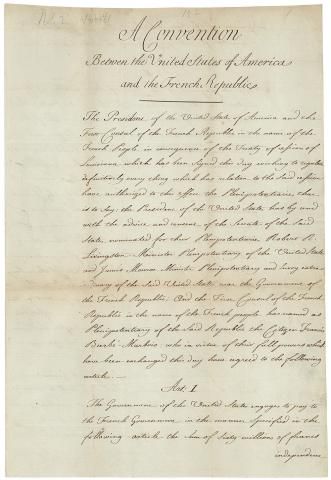 A Convention
Between the United States of America
and the French Republic
The President of the United States of America and the
First Consul of the French Republic in the name of the
French People, in consequence of the Treaty of cession of
Louisiana which has been signed this day wishing to regulate
definitively every thing which has relation to the said cession
have authorized to this effect the Plenipotentiaries, that
is to say, the President of the United States has, by and
with the advice and consent of the Senate of the said
States, nominated for their Plenipotentiaries, Robert R.
Livingston Minister Plenipotentiary of the United States
and James Monroe Minister Plenipotentiary and Envoy extra-
ordinary of the Said United States near the Government of
the French Republic, And the First Consul of the French
Republic in the name of the French people has named as
Plenipotentiary of the Said Republic the Citizen Francis
Barbé Marbois; who in virtue of their full powers which
have been exchanged this day have agreed to the following
articles.
Art: I
The Government of the United States engages to pay to
the French Government in the manner Specified in the
following article the sum of Sixty millions of francs
independent